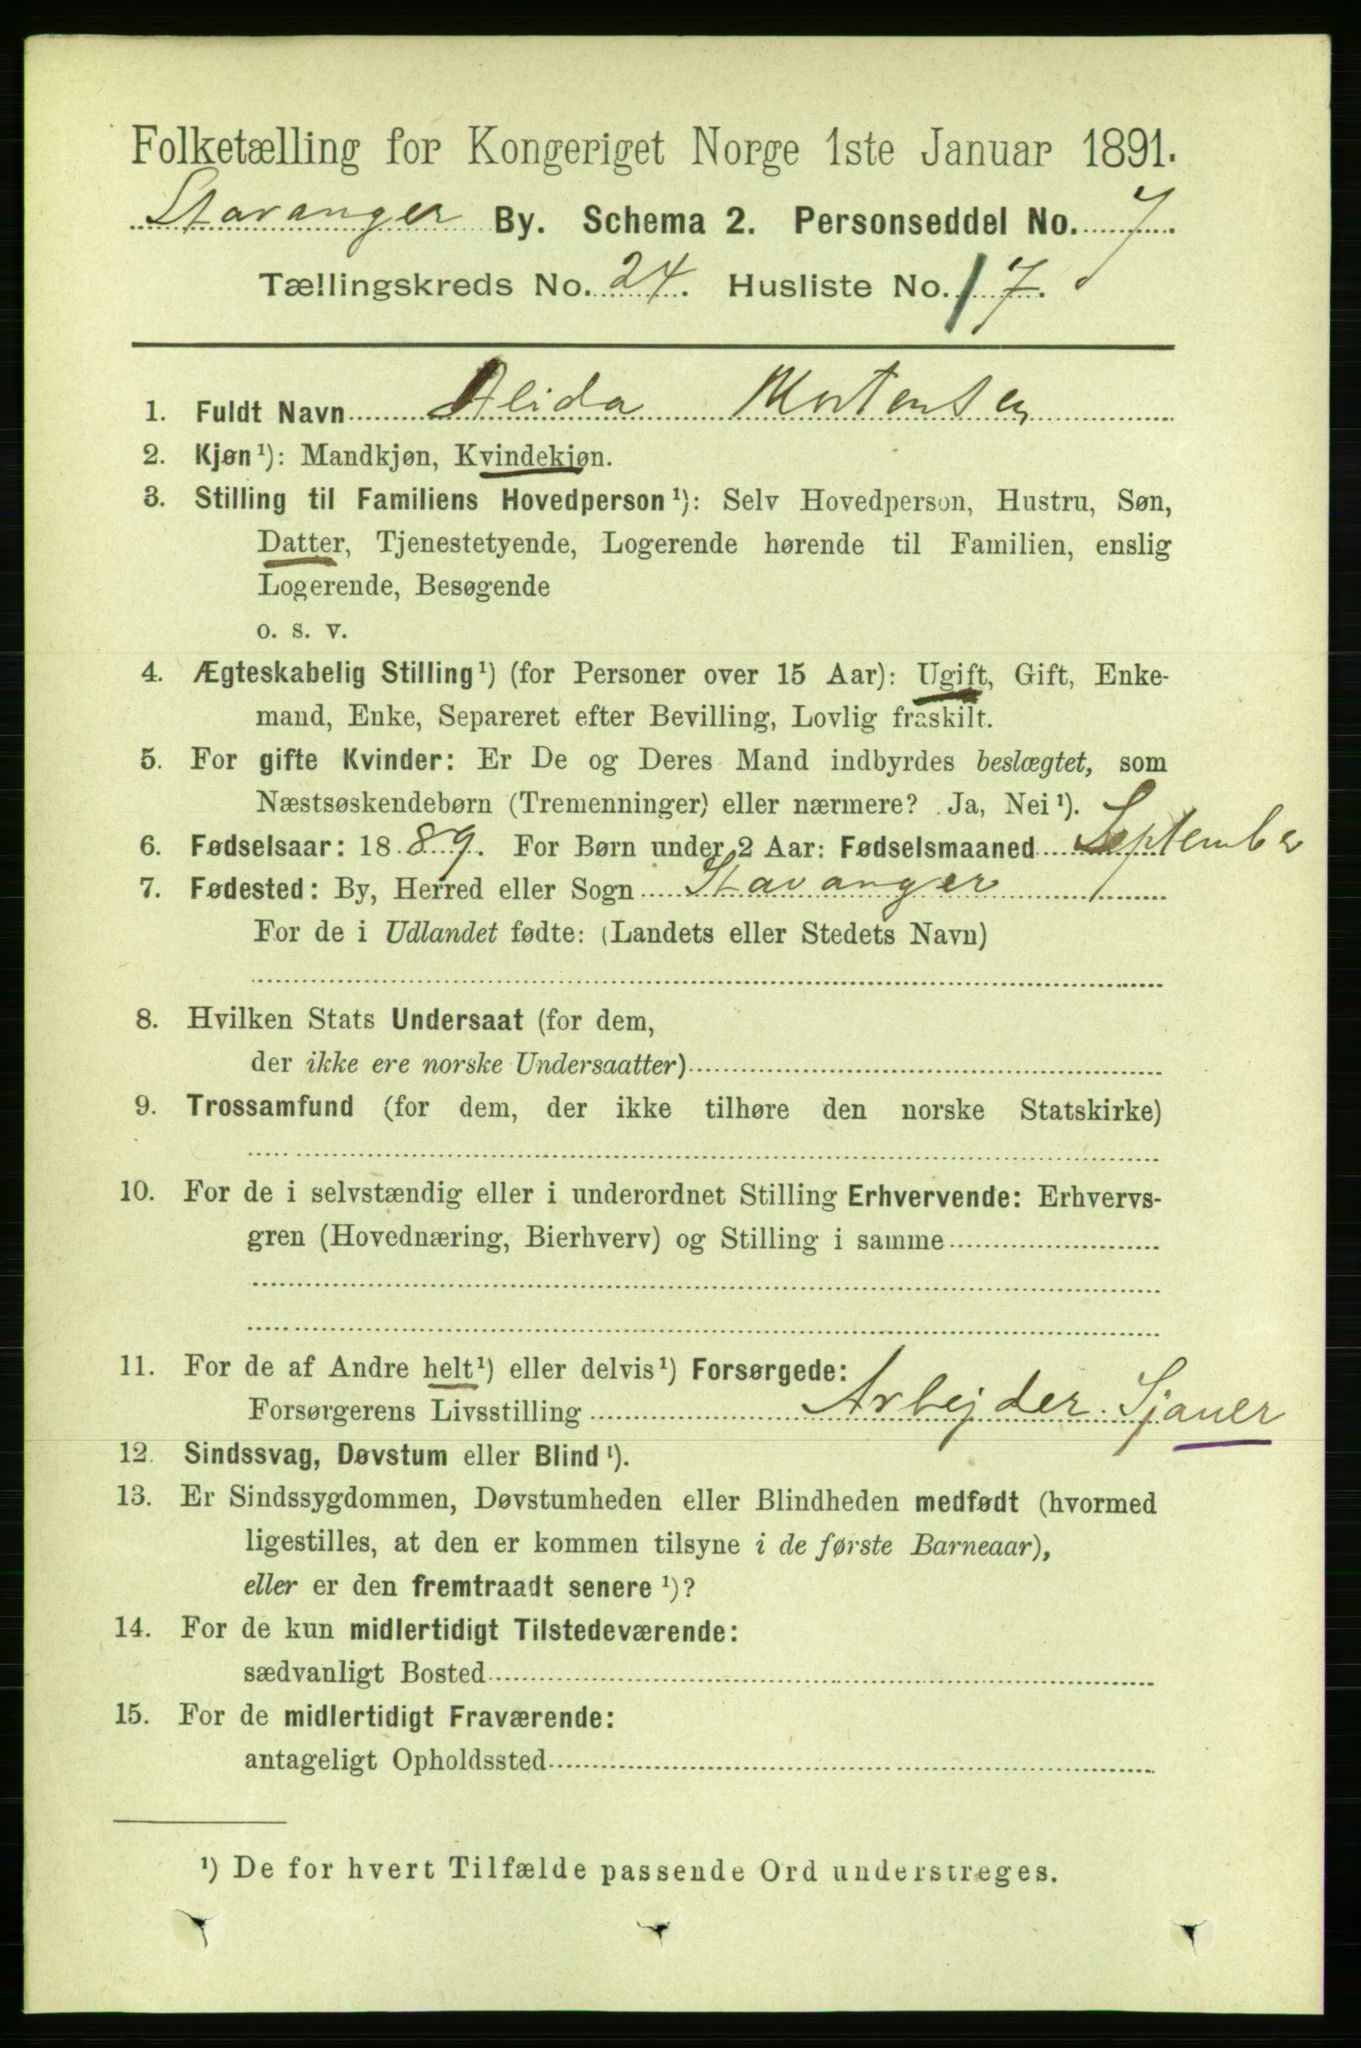 Folketælling for Kongeriget Norge 1ste Januar 1891.
Stavanger By. Schema 2. Personseddel No. 7.
Tællingskreds No. 24. Husliste No. 17.
1. Fuldt Navn Alida Mortensen
2. Kjøn¹): Mandkjøn, Kvindekjøn.
3. Stilling til Familiens Hovedperson¹): Selv Hovedperson, Hustru, Søn,
Datter, Tjenestetyende, Logerende hørende til Familien, enslig
Logerende, Besøgende
o. s. v.
4. Ægteskabelig Stilling¹) (for Personer over 15 Aar): Ugift, Gift, Enke-
mand, Enke, Separeret efter Bevilling, Lovlig fraskilt.
5. For gifte Kvinder: Er De og Deres Mand indbyrdes beslægtet, som
Næstsøskendebørn (Tremenninger) eller nærmere? Ja, Nei¹).
6. Fødselsaar: 1889. For Børn under 2 Aar: Fødselsmaaned September
7. Fødested: By, Herred eller Sogn Stavanger
For de i Udlandet fødte: (Landets eller Stedets Navn)
8. Hvilken Stats Undersaat (for dem,
der ikke ere norske Undersaatter)
9. Trossamfund (for dem, der ikke tilhøre den norske Statskirke)
10. For de i selvstændig eller i underordnet Stilling Erhvervende: Erhvervs-
gren (Hovednæring, Bierhverv) og Stilling i samme
11. For de af Andre helt¹) eller delvis¹) Forsørgede:
Forsørgerens Livsstilling Arbejder. Sjauer
12. Sindssvag, Døvstum eller Blind¹).
13. Er Sindssygdommen, Døvstumheden eller Blindheden medfødt (hvormed
ligestilles, at den er kommen tilsyne i de første Barneaar),
eller er den fremtraadt senere¹)?
14. For de kun midlertidigt Tilstedeværende:
sædvanligt Bosted
15. For de midlertidigt Fraværende:
antageligt Opholdssted
¹) De for hvert Tilfælde passende Ord understreges.